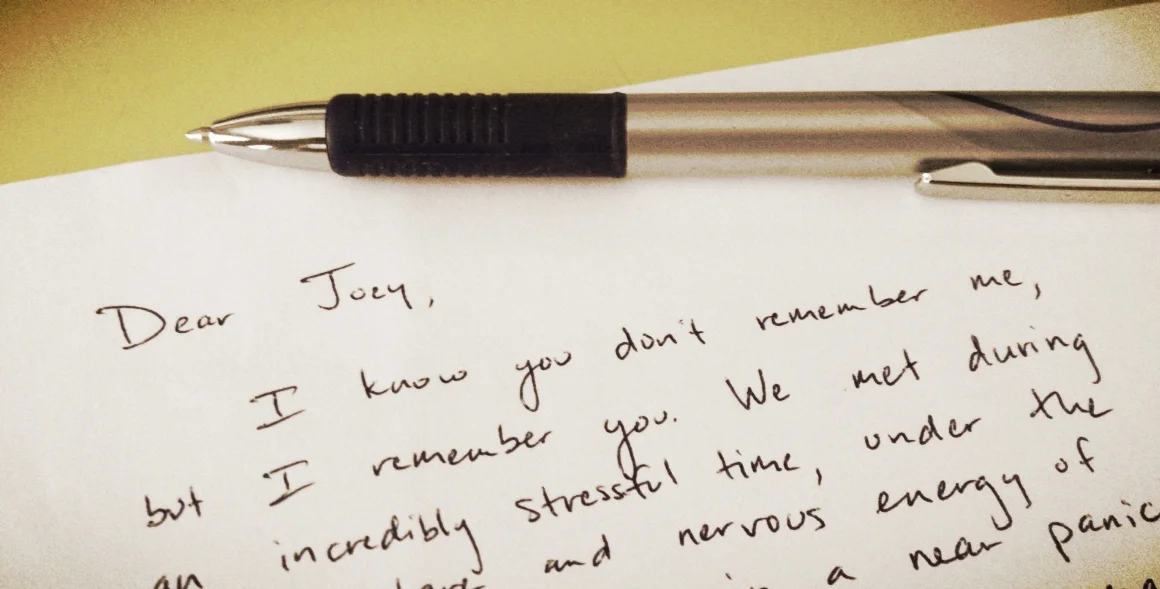 Dear Joey,
I know you don't remember me,
but I remember you. We met during
an incredibly stressful time, under the
and nervous energy of
a near panic